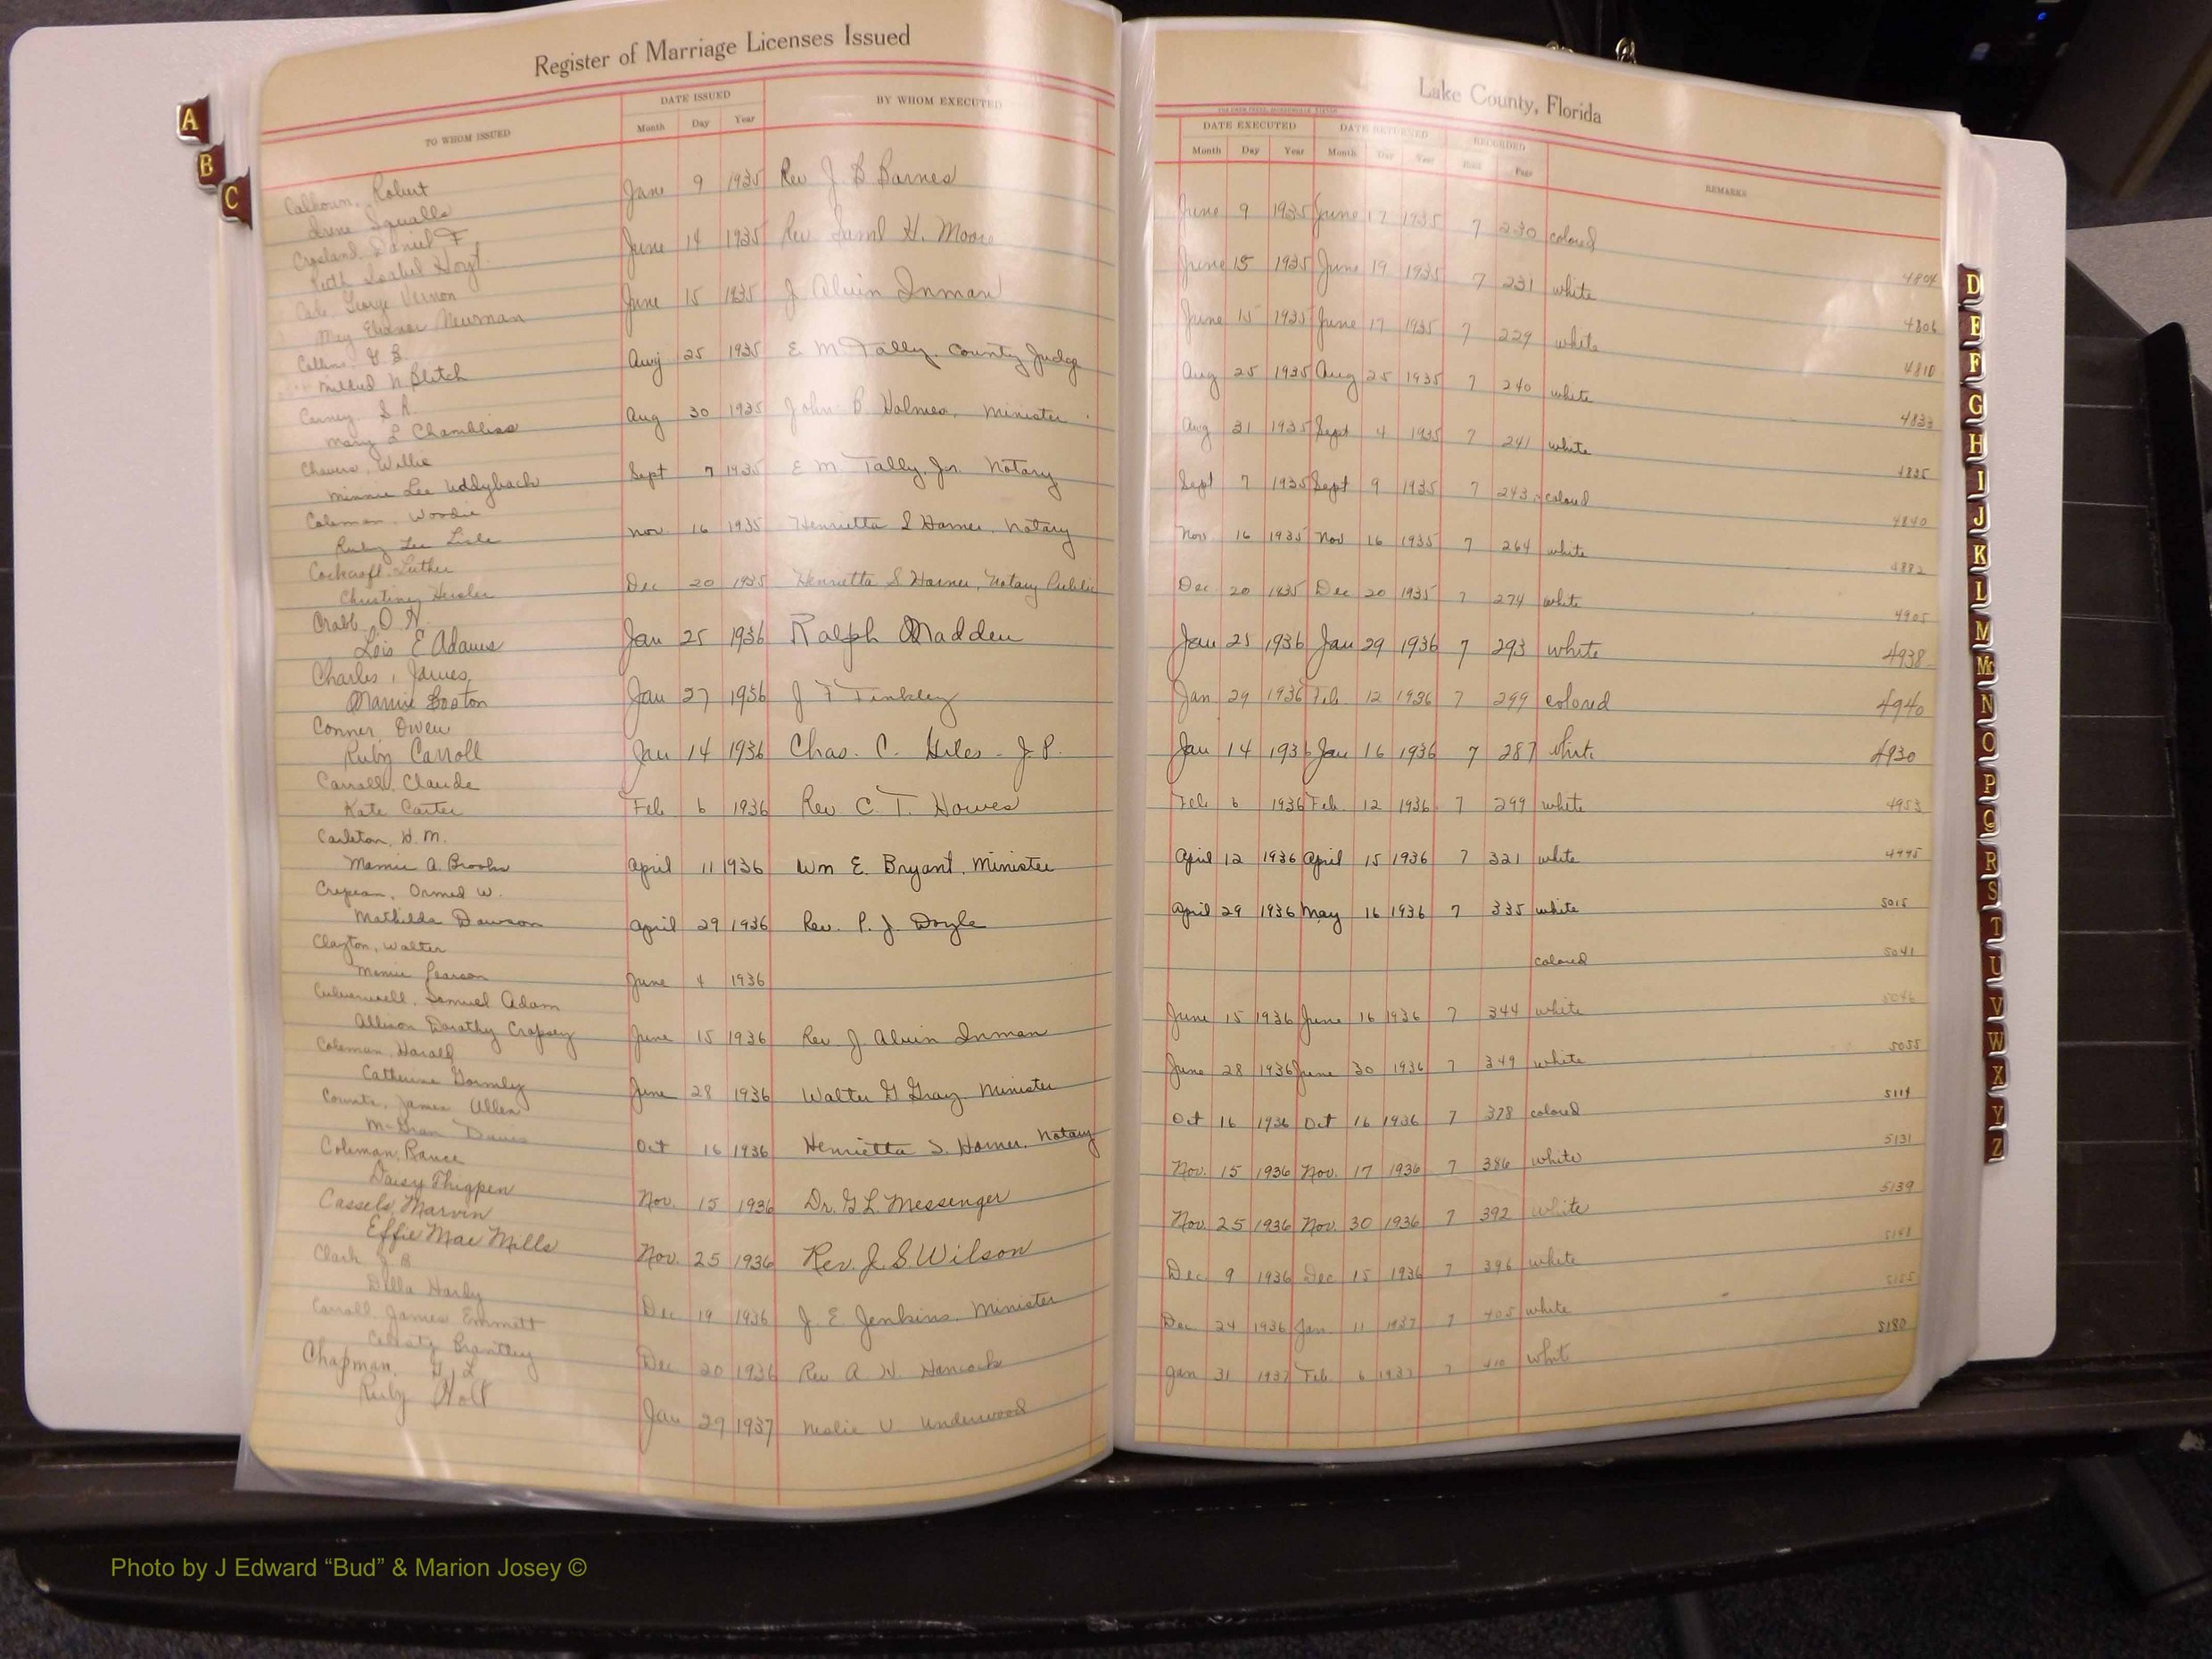 Register of Marriage Licenses Issued
Lake County, Florida
TO WHOM ISSUED
DATE ISSUED
Month Day Year
BY WHOM EXECUTED
DATE EXECUTED
Month Day Year
DATE RETURNED
Month Day Year
RECORDED
Book Page
REMARKS
Calhoun, Robert
Irene Squalls
June 9 1935 Rev J. B Barnes
June 9 1935 June 17 1935 7 230 colored 4804
Copeland Daniel F.
Ruth Isabel Hoyt
June 14 1935 Rev Saml H. Moore
June 15 1935 June 19 1935 7 231 white 4806
Cale, George Vernon
May Eleanor Neuman
June 15 1935 J Alvin Inman
June 15 1935 June 17 1935 7 229 white 4810
Collins, G B
Mildred N Blitch
Aug 25 1935 E M Tally, County Judge
Aug 25 1935 Aug 25 1935 7 240 white 4833
Carney, S R.
Mary L Chambliss
Aug 30 1935 John B Holmes, Minister
Aug 31 1935 Sept 4 1935 7 241 white 4835
Chavers, Willie
Minnie Lee Uddyback
Sept 7 1935 E M Tally, Jr. Notary
Sept 7 1935 Sept 9 1935 7 243 colored 4840
Coleman, Woodie
Ruby Lee Lisle
Nov 16 1935 Henrietta S Harner, Notary
Nov 16 1935 Nov 16 1935 7 264 white 4882
Cockcroft, Luther
Christine
Dec 20 1935 Henrietta S Harner, Notary Public
Dec 20 1935 Dec 20 1935 7 274 white 4905
Crabb, O H.
Lois E Adams
Jan 25 1936 Ralph Madden
Jan 25 1936 Jan 29 1936 7 293 white 4938
Charles, James,
Mamie Boston
Jan 27 1936 J F Tinkley
Jan 29 1936 Feb. 12 1936 7 299 colored 4940
Conner, Owen
Ruby Carroll
Jan 14 1936 Chas. C. Hiles - J. P.
Jan 14 1936 Jan 16 1936 7 287 white 4930
Carroll, Claude
Kate Carter
Feb 6 1936 Rev C. T. Howes
Feb 6 1936 Feb. 12 1936 7 299 white 4953
Carleton, H. M.
Mamie A. Brooks
April 11 1936 Wm E. Bryant, Minister
April 12 1936 April 15 1936 7 321 white 4995
Crepeau, Ormed W.
Mathilda Dawson
April 29 1936 Rev. P. J. Doyle
April 29 1936 May 16 1936 7 335 white 5015
Clayton, Walter
Mamie Pearson
June 4 1936
colored 5041
Culverwell, Samuel Adam
Allison Dorothy Cropsey
June 15 1936 Rev J. Alvin Inman
June 15 1936 June 16 1936 7 344 white 5046
Coleman, Harold
Catherine Gormly
June 28 1936 Walter G Gray, Minister
June 28 1936 June 30 1936 7 349 white 5055
Counts, James Allen
Davis
Oct 16 1936 Henrietta S. Harner, Notary
Oct 16 1936 Oct 16 1936 7 378 colored 5114
Coleman, Rance
Daisy Thigpen
Nov. 15 1936 Dr. G L. Messenger
Nov. 15 1936 Nov. 17 1936 7 386 white 5131
Cassels, Marvin
Effie Mae Mills
Nov. 25 1936 Rev. J. S. Wilson
Nov. 25 1936 Nov. 30 1936 7 392 white 5139
Clark J B
Della Hardy
Dec 19 1936 J. E. Jenkins, Minister
Dec 9 1936 Dec 15 1936 7 396 white
Carroll, James Emmett
Brantley
Dec 20 1936 Rev A. H. Hancock
Dec 24 1936 Jan. 11 1937 7 405 white
Chapman, G L
Ruby Holt
Jan 29 1937 Leslie V. Underwood
Jan 31 1937 Feb 6 1937 7 410 white 5180
A
B
C
D
E
F
G
H
I
J
K
L
M
Mc
N
O
P
Q
R
S
T
U
V
W
X
Y
Z
Photo by J Edward “Bud” & Marion Josey ©